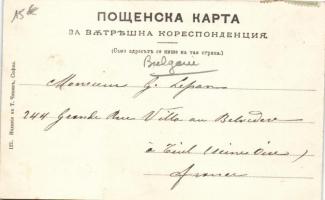 15€
ПОЩЕНСКА КАРТА
ЗА ВѪТРѢШНА КОРЕСПОНДЕНЦИЯ.
(Само адресътъ се пише на тая страна.)
Bulgarie
Monsieur G.
244 Grande Rue Villa au Belvédère
à
France
121. Издание на Т. Чипевъ, София.